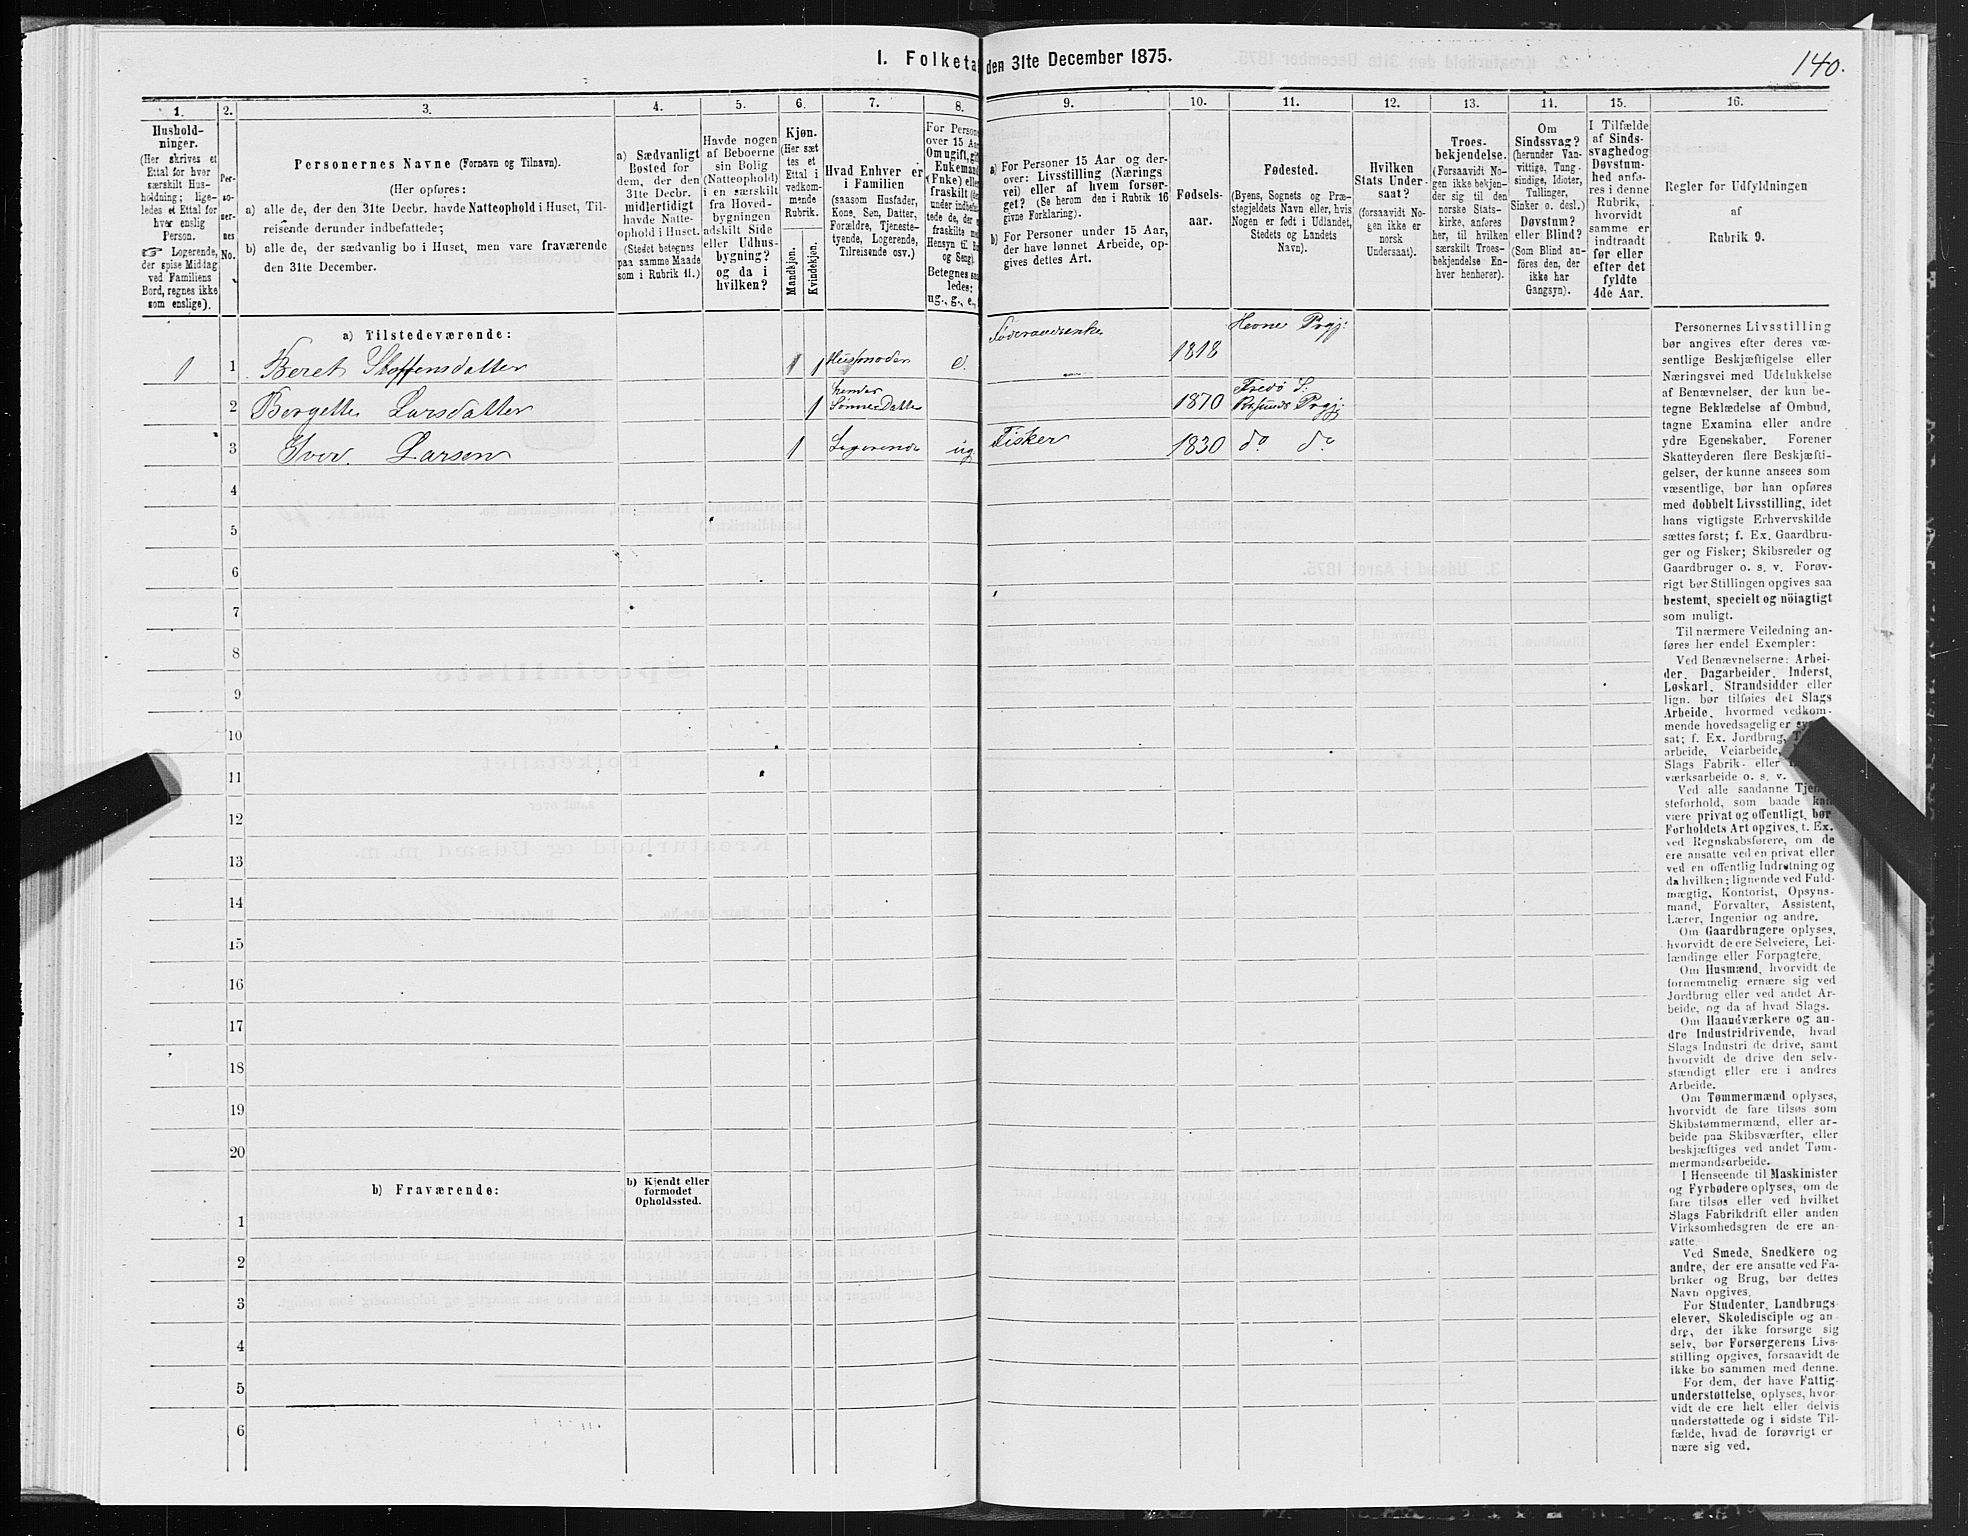 1. Folketa den 31te December 1875.
140.
1. 2. 3. 4. 5. 6. 7. 8. 9. 10. 11. 12. 13. 14. 15. 16.
Hushold-
ninger.
(Her skrives et
Ettal for hver
særskilt Hus-
holdning; lige-
ledes et Ettal for
hver enslig
Person.
☞ Logerende,
der spise Middag
ved Familiens
Bord, regnes ikke
som enslige).
Per-
so-
ner-
nes
No.
Personernes Navne (Fornavn og Tilnavn).
(Her opføres:
a) alle de, der den 31te Decbr. havde Natteophold i Huset, Til-
reisende derunder indbefattede;
b) alle de, der sædvanlig bo i Huset, men vare fraværende
den 31te December.
a) Sædvanligt
Bosted for
dem, der den
31te Decbr.
midlertidigt
havde Natte-
ophold i Huset.
(Stedet betegnes
paa samme Maade
som i Rubrik 11.)
Havde nogen
af Beboerne
sin Bolig
(Natteophold)
i en særskilt
fra Hoved-
bygningen
adskilt Side
eller Udhus-
bygning?
og da i
hvilken?
Kjøn.
(Her sæt
tes et
Ettal i
vedkom-
mende
Rubrik.
Mandkjøn.
Kvindekjøn.
Hvad Enhver er
i Familien
(saasom Husfader,
Kone, Søn, Datter,
Forældre, Tjeneste-
tyende, Logerende,
Tilreisende osv.)
For Person
over 15 Aa
Om ugift, gif
Enkemand
(Enke) elle
fraskilt
Betegnes saa
ledes:
ug., g., e.,
a) For Personer 15 Aar og der-
over: Livsstilling (Nærings
vei) eller af hvem forsør-
get? (Se herom den i Rubrik 16
givne Forklaring).
b) For Personer under 15 Aar,
der have lønnet Arbeide, op-
gives dettes Art.
Fødsels-
aar.
Fødested.
(Byens, Sognets og Præ-
stegjeldets Navn eller, hvis
Nogen er født i Udlandet,
Stedets og Landets
Navn).
Hvilken
Stats Under-
saat?
(forsaavidt No-
gen ikke er
norsk
Undersaat).
Troes-
bekjendelse.
(Forsaavidt No-
gen ikke bekjen-
der sig til den
norske Stats-
kirke, anføres
her, til hvilken
særskilt Troes-
bekjendelse En-
hver henhører).
Om
Sindssvag?
(herunder Van-
vittige, Tung-
sindige, Idioter,
Tullinger,
Sinker o. desl.)
Døvstum?
eller Blind?
(Som Blind an-
føres den, der
ikke har
Gangsyn).
I Tilfælde
af Sinds-
svaghed og
Døvstum-
hed anfø-
res i denne
Rubrik,
hvorvidt
samme er
indtraadt
før eller
efter det
fyldte
4de Aar.
Regler for Udfyldningen
af
Rubrik 9.
a) Tilstedeværende:
1 1 Beret Stoffensdatter 1 1 Husmoder e. Føderaadsenke 1818 Hevne Prgj:
2 Bergette Larsdatter 1 hendes Sønne Datter 1870 Fredø S: Prgj:
3 Iver Larsen 1 Logerende ug Fisker 1830 do do
4
5
6
7
8
9
10
11
12
13
14
15
16
17
18
19
20
b) Fraværende:
b) Kjendt eller
formodet
Opholdssted.
1
2
3
4
5
6
Personernes Livsstilling
bør angives efter deres væ-
sentlige Beskjæftigelse eller
Næringsvei med Udelukkelse
af Benævnelser, der kun be-
tegne Beklædelse af Ombud,
tagne Examina eller andre
ydre Egenskaber. Forener
Skatteyderen flere Beskjæfti-
gelser, der kunne ansees som
væsentlige, bør han opføres
med dobbelt Livsstilling, idet
hans vigtigste Erhvervskilde
sættes først; f. Ex. Gaardbru-
ger og Fisker; Skibsreder og
Gaardbruger o. s. v. Forøv-
rigt bør Stillingen opgives saa
bestemt, specielt og nöiagtigt
som muligt.
Til nærmere Veiledning an-
føres her endel Exempler:
Ved Benævnelserne: Arbei-
der, Dagarbeider, Inderst,
Løskarl, Strandsidder eller
lign. bør tilføies det Slags
Arbeide, hvormed vedkom-
mende hovedsagelig er
sat; f. Ex. Jordbrug,
arbeide, Veiarbeide,
Slags Fabrik- eller
værksarbeide o. s. v.
Ved alle saadanne Tjen
steforhold, som baade kan
være privat og offentligt, bør
Forholdets Art opgives, t. Ex.
ved Regnskabsførere, om de
ere ansatte ved en privat eller
ved en offentlig Indretning og
da hvilken; lignende ved Fuld-
mægtig, Kontorist, Opsyns-
mand, Forvalter, Assistent,
Lærer, Ingeniør og andre.
Om Gaardbrugere oplyses,
hvorvidt de ere Selveiere, Lei-
lændinge eller Forpagtere.
Om Husmænd, hvorvidt de
fornemmelig ernære sig ved
Jordbrug eller ved andet Ar-
beide, og da af hvad Slags.
Om Haandværkere og an-
dre Industridrivende, hvad
Slags Industri de drive, samt
hvorvidt de drive den selv-
stændigt eller ere i andres
Arbeide.
Om Tømmermænd oplyses,
hvorvidt de fare tilsøs som
Skibstømmermænd, eller ar-
beide paa Skibsværfter, eller
beskjæftiges ved andet Tøm-
mermandsarbeide.
I Henseende til Maskinister
og Fyrbødere oplyses, om de
fare tilsøs eller ved hvilket
Slags Fabrikdrift eller anden
Virksomhedsgren de ere an-
satte.
Ved Smede, Snedkere og
andre, der ere ansatte ved Fa-
briker og Brug, bør dettes
Navn opgives.
For Studenter, Landbrugs-
elever, Skoledisciple og an-
dre, der ikke forsørge sig
selv, bør Forsørgerens Livs-
stilling opgives, forsaavidt de
ikke bo sammen med denne.
For dem, der have Fattig-
understøttelse, oplyses, hvor-
vidt de ere helt eller delvis
understøttede og i sidste Til-
fælde, hvad de forøvrigt er
nære sig ved.